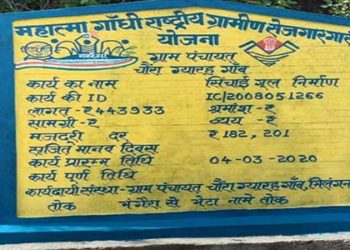 महात्मा गाँधी राष्ट्रीय ग्रामीण रोजगार गारं
योजना
मनरेगा
ग्राम पंचायत
चौंरा ग्यारह गाँव
कार्य का नाम सिंचाई गूल निर्माण
कार्य की ID IC/2008051266
लागत-₹443933 श्रमांश-₹
सामग्री-₹ व्यय-₹
मजदूरी दर ₹182, 201
सृजित मानव दिवस
कार्य प्रारम्भ तिथि 04-03-2020
कार्य पूर्ण तिथि
कार्यदायी संस्था-ग्राम पंचायत चौंरा ग्यारह गाँव, भिलंगन
तोक भंगैरा से गेटा नामे तोक